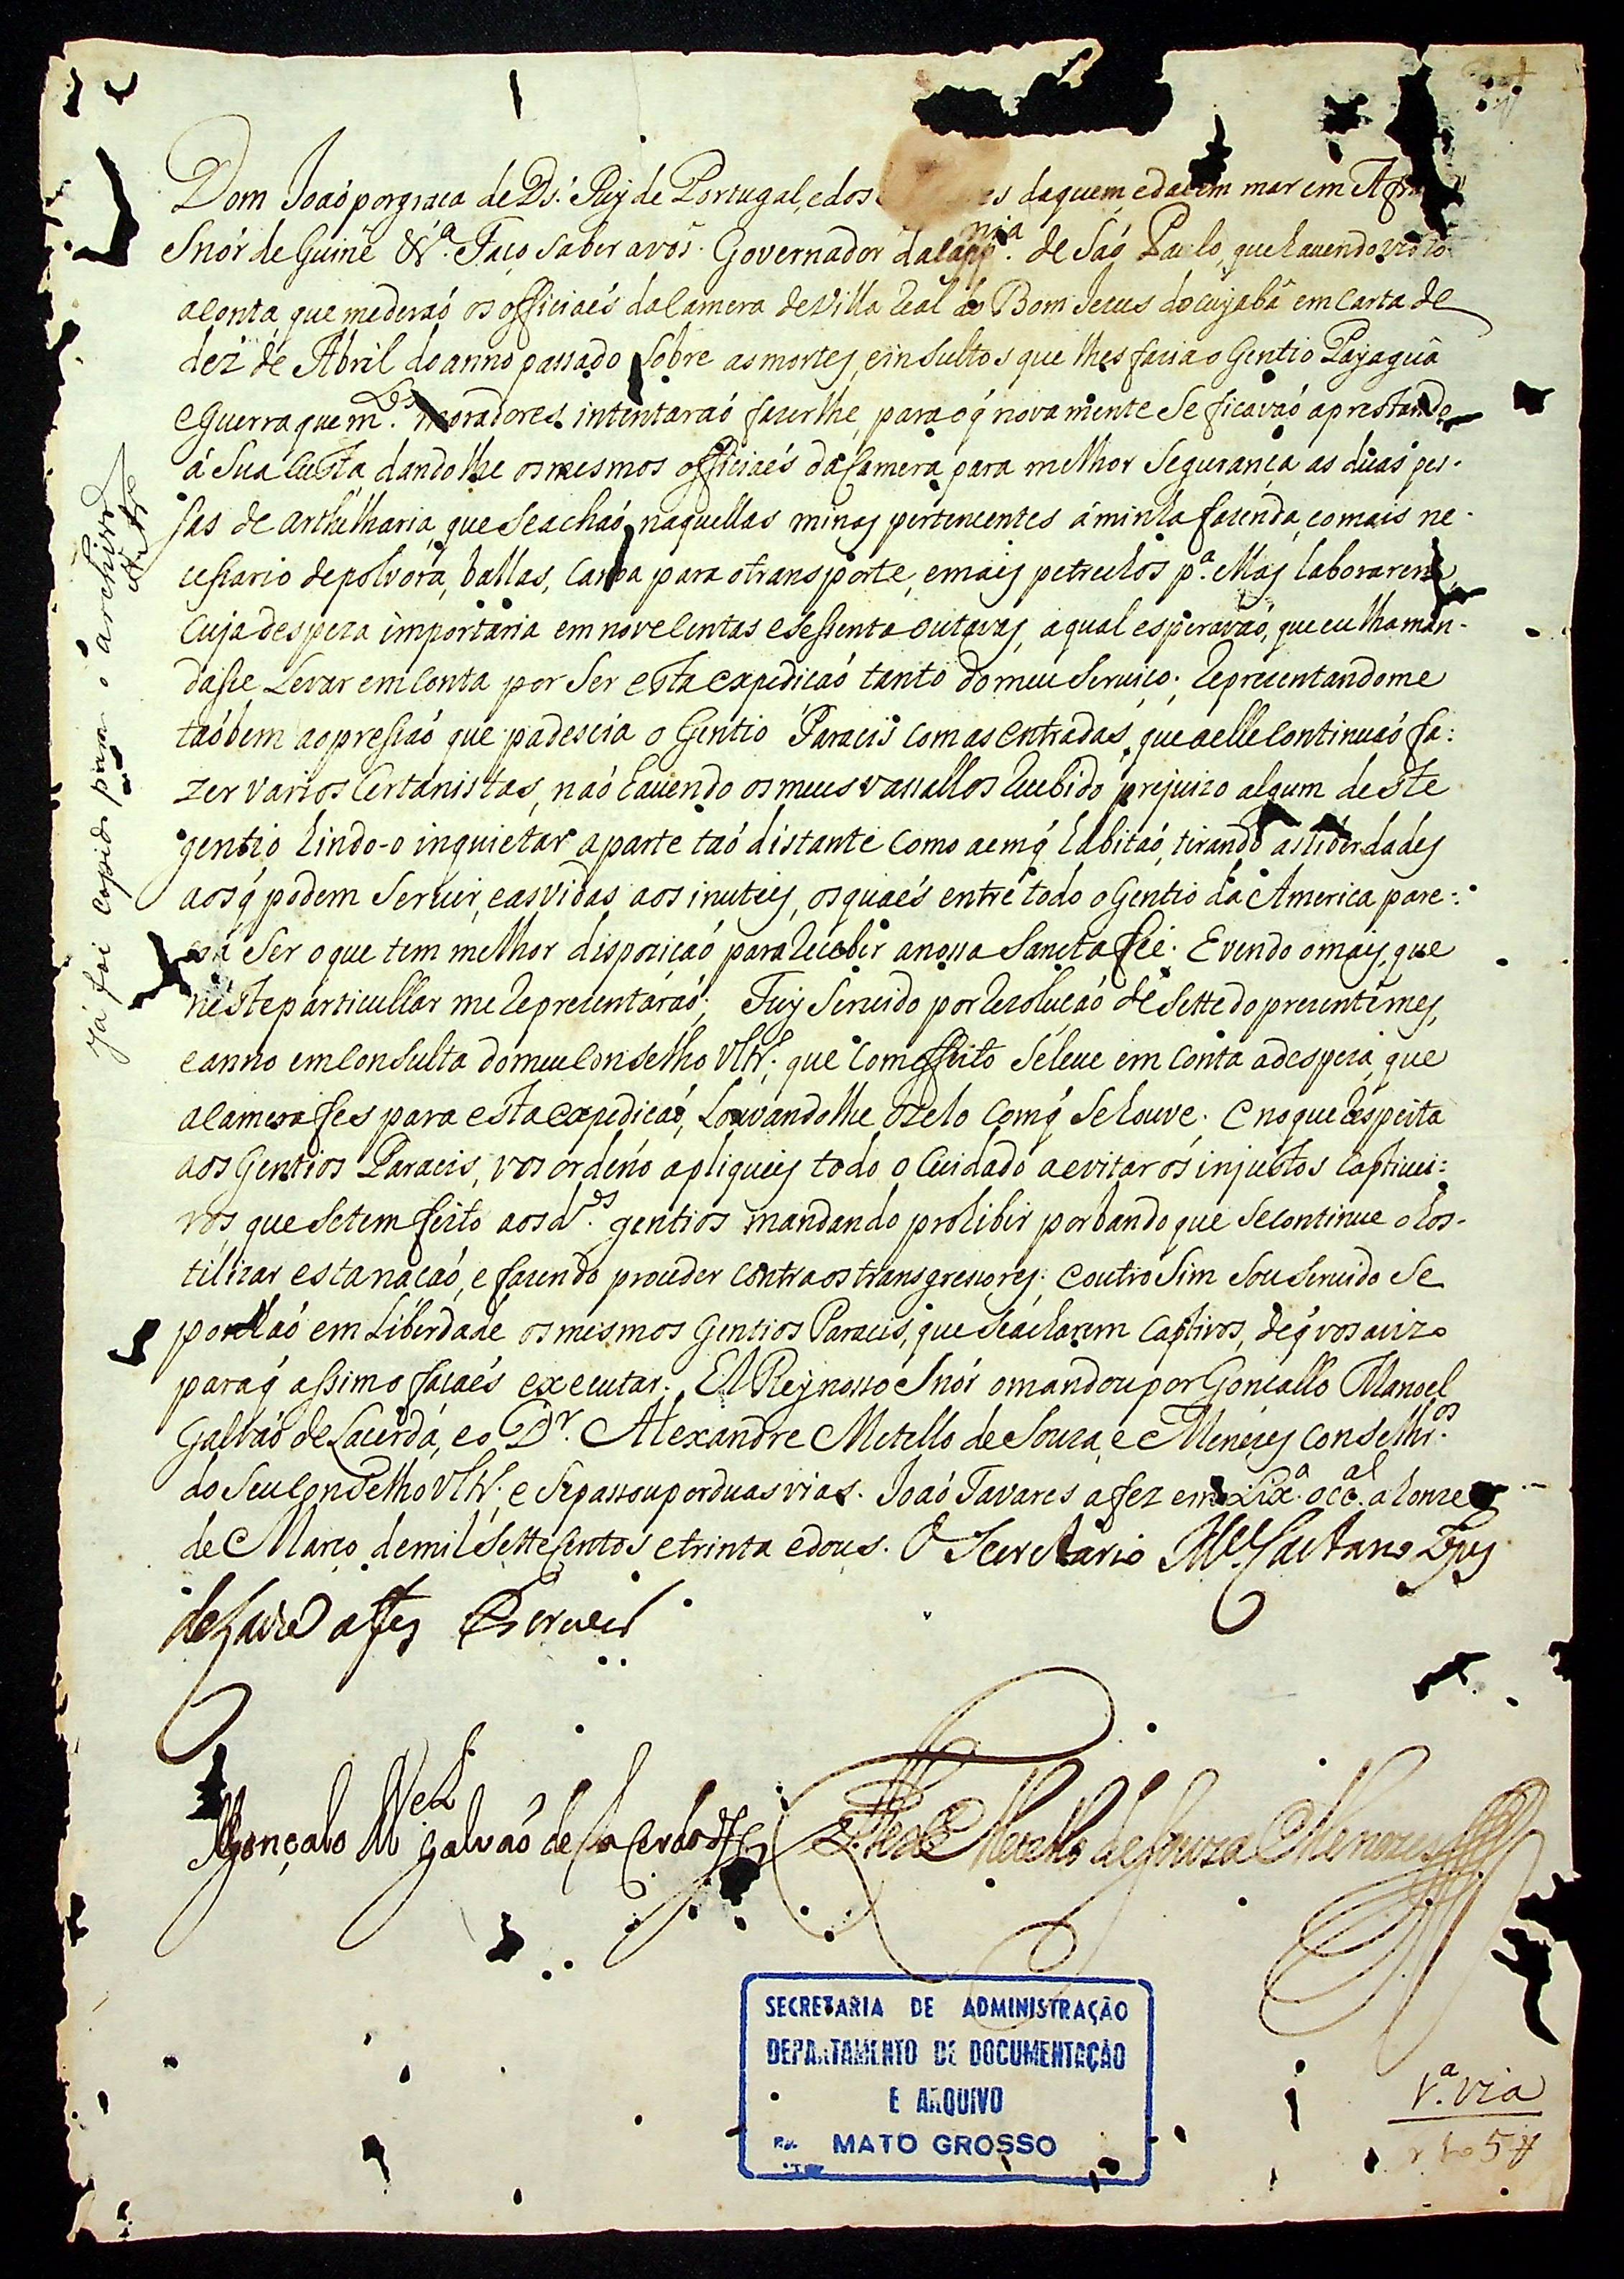 Dom Joaó por graça de Ds. Rey de Portugal, e dos es daquem, e dalem mar em Afr
Snór de Guiné &ª. Faço saber a vós Governador da capp.nia de Saó Paulo, que havendo visto
a conta, que me deraó os officiaés da Camera de Villa Real do Bom Jesus do Cuyabâ em carta de
dez de Abril do anno passado sobre as mortes, e insultos que lhes fasia o Gentio Payaguâ
e guerra que m.tos moradores intentaraó fazerlhe, para o q̃ novamente se ficavaó aprestando
á sua custa, dandolhe os mesmos officiaés da Camera para melhor segurança as duas pes-
sas de arthelharia, que se achaó naquellas minas pertencentes á minha fasenda, e o mais ne-
cessario de polvora, ballas, canoa para o transporte, e mais petrechos pª. ellas laborarem,
cuja despeza importaria em novecentas e sessenta outavas, a qual esperavaõ, que eu lha man-
dasse levar em conta por ser esta expediçaó tanto do meu serviço; representandome
taóbem a opressaó que padescia o Gentio Paracis com as entradas, que a elle continuaó fa:
zer varios certanistas, naó havendo os meus vassallos recebido prejuizo algum deste
gentio, hindo-o inquietar a parte taó distante como a em q̃ habitaó, tirando as liberdades
aos q̃ podem servir, e as vidas aos inuteis, os quaés entre todo o Gentio da America pare-:
cia ser o que tem melhor disposiçaó para receber a nossa Sancta fee. E vendo o mais, que
neste particullar me representáraó; Fuy servido por rezoluçaó de sette do prezente mes,
e anno em consulta do meu Conselho Vltr.º que com effeito se leve em conta a despeza, que
a Camera fes para esta expediçaó, louvandolhe o zelo com q̃ se houve. E no que respeita
aos Gentios Paracis, vos ordeno apliqueis todo o cuidado a evitar os injustos captivei:
ros, que se tem feito aos d.os gentios mandando prohibir por bando que se continue o hos-
tilizar esta naçaó, e fasendo proceder contra os transgressores; e outro sim sou servido se
ponhaó em liberdade os mesmos Gentios Paracis, que se acharem captivos, de q̃ vos avizo
para q̃ assim o façaés executar. El Rey nosso Snór o mandou por Goncallo Manoel
Galvaó de Lacerda, e o Dr. Alexandre Metello de Souza, e Menezes Conselhr.os
do seu Conselho Vltr.º e se passou por duas vias. Joaó Tavares a fez em Lxª. occ.al a honze
de Março de mil settecentos e trinta e dous. O Secretario M.el Caetano Lopes
de Lavre a fes escrever
Gonçalo M.el Galvaó de Lacerda Alex.e Metello de Souza e Menezes
já foi copiado para o archivo
SECRETARIA DE ADMINISTRAÇÃO
DEPARTAMENTO DE DOCUMENTAÇÃO
E ARQUIVO
MATO GROSSO
1.ª via